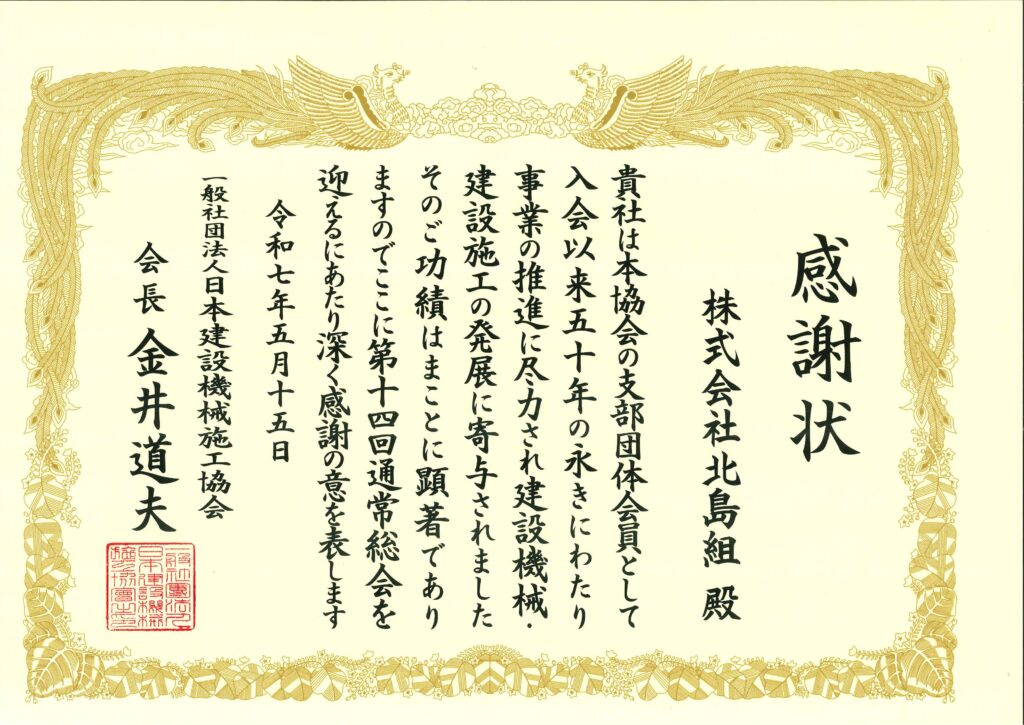 感謝状
株式会社北島組 殿
貴社は本協会の支部団体会員として
入会以来五十年の永きにわたり
事業の推進に尽力され建設機械・
建設施工の発展に寄与されました
そのご功績はまことに顕著であり
ますのでここに第十四回通常総会を
迎えるにあたり深く感謝の意を表します
令和七年五月十五日
一般社団法人日本建設機械施工協会
会長 金井道夫